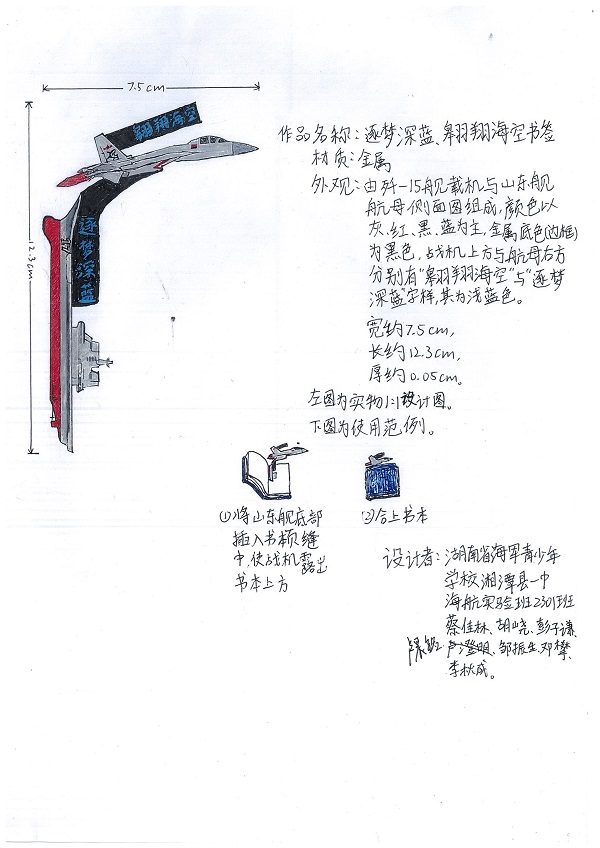 7.5cm
翱翔海空
12.3cm
逐梦深蓝
17
作品名称：逐梦深蓝、翱翔海空书签
材质：金属
外观：由歼-15舰载机与山东舰
航母侧面图组成，颜色以
灰、红、黑、蓝为主，金属底色(边框)
为黑色，战机上方与航母右方
分别有“翱翔海空”与“逐梦
深蓝”字样，其为浅蓝色。
宽约7.5cm，
长约12.3cm，
厚约0.05cm。
左图为实物1:1设计图。
下图为使用范例。
①将山东舰底部
插入书本页缝
中，使战机露出
书本上方
②合上书本
设计者：湖南省海军青少年
学校湘潭县一中
海航实验班2301班
蔡佳林、胡峣、彭子谦、
邹振生、邓樊、
李秋成。